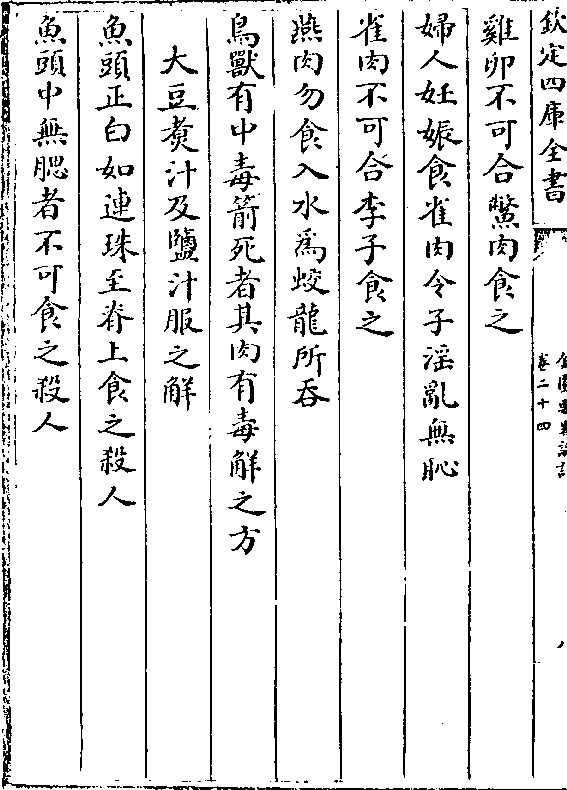 欽定四庫全書
金匱要略論註
卷二十四
八
雞卵不可合鱉肉食之
婦人妊娠食雀肉令子淫亂無恥
雀肉不可合李子食之
燕肉勿食入水為蛟龍所吞
鳥獸有中毒箭死者其肉有毒解之方
大豆煑汁及鹽汁服之解
魚頭正白如連珠至脊上食之殺人
魚頭中無腮者不可食之殺人